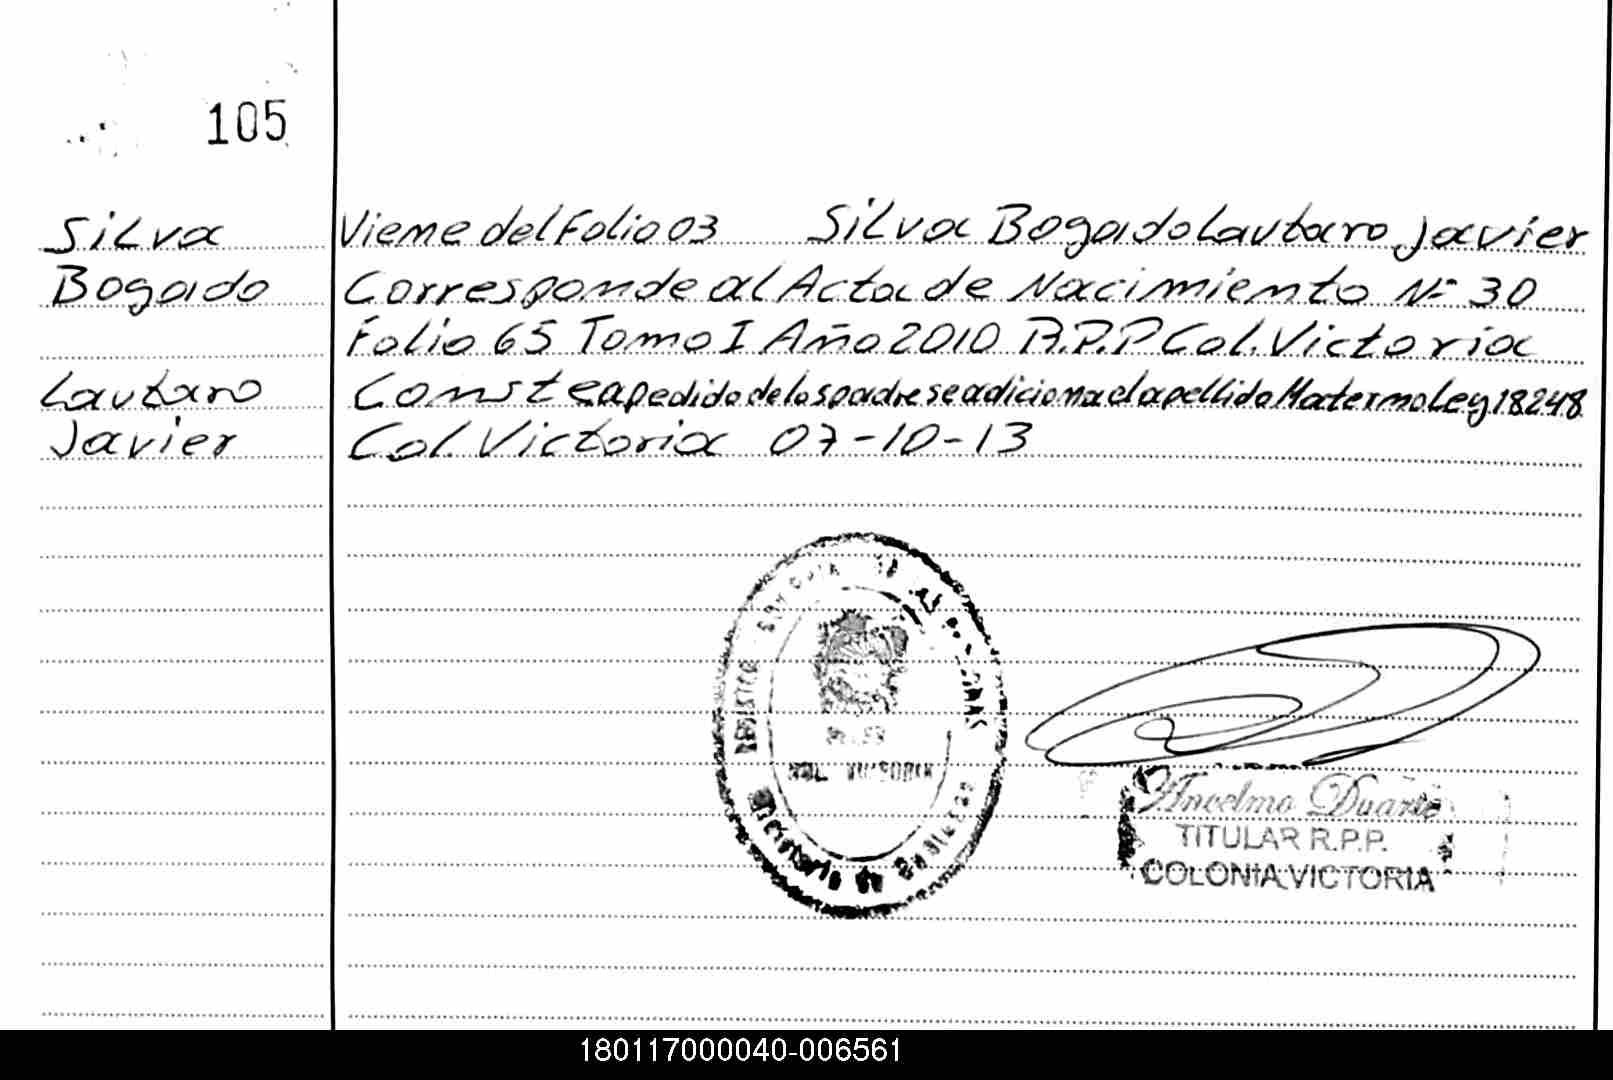 105
Silva
Bogado
Lautaro
Javier
Viene del Folio 03 Silva Bogado Lautaro Javier
Corresponde al Acta de Nacimiento Nº 30
Folio 65 Tomo I Año 2010 R.P.P Col. Victoria
Conste a pedido de los padres se adiciona el apellido Materno Ley 18248
Col. Victoria 07-10-13
Secretaría de
Ancelmo Duarte
TITULAR R.P.P.
COLONIA VICTORIA
180117000040-006561